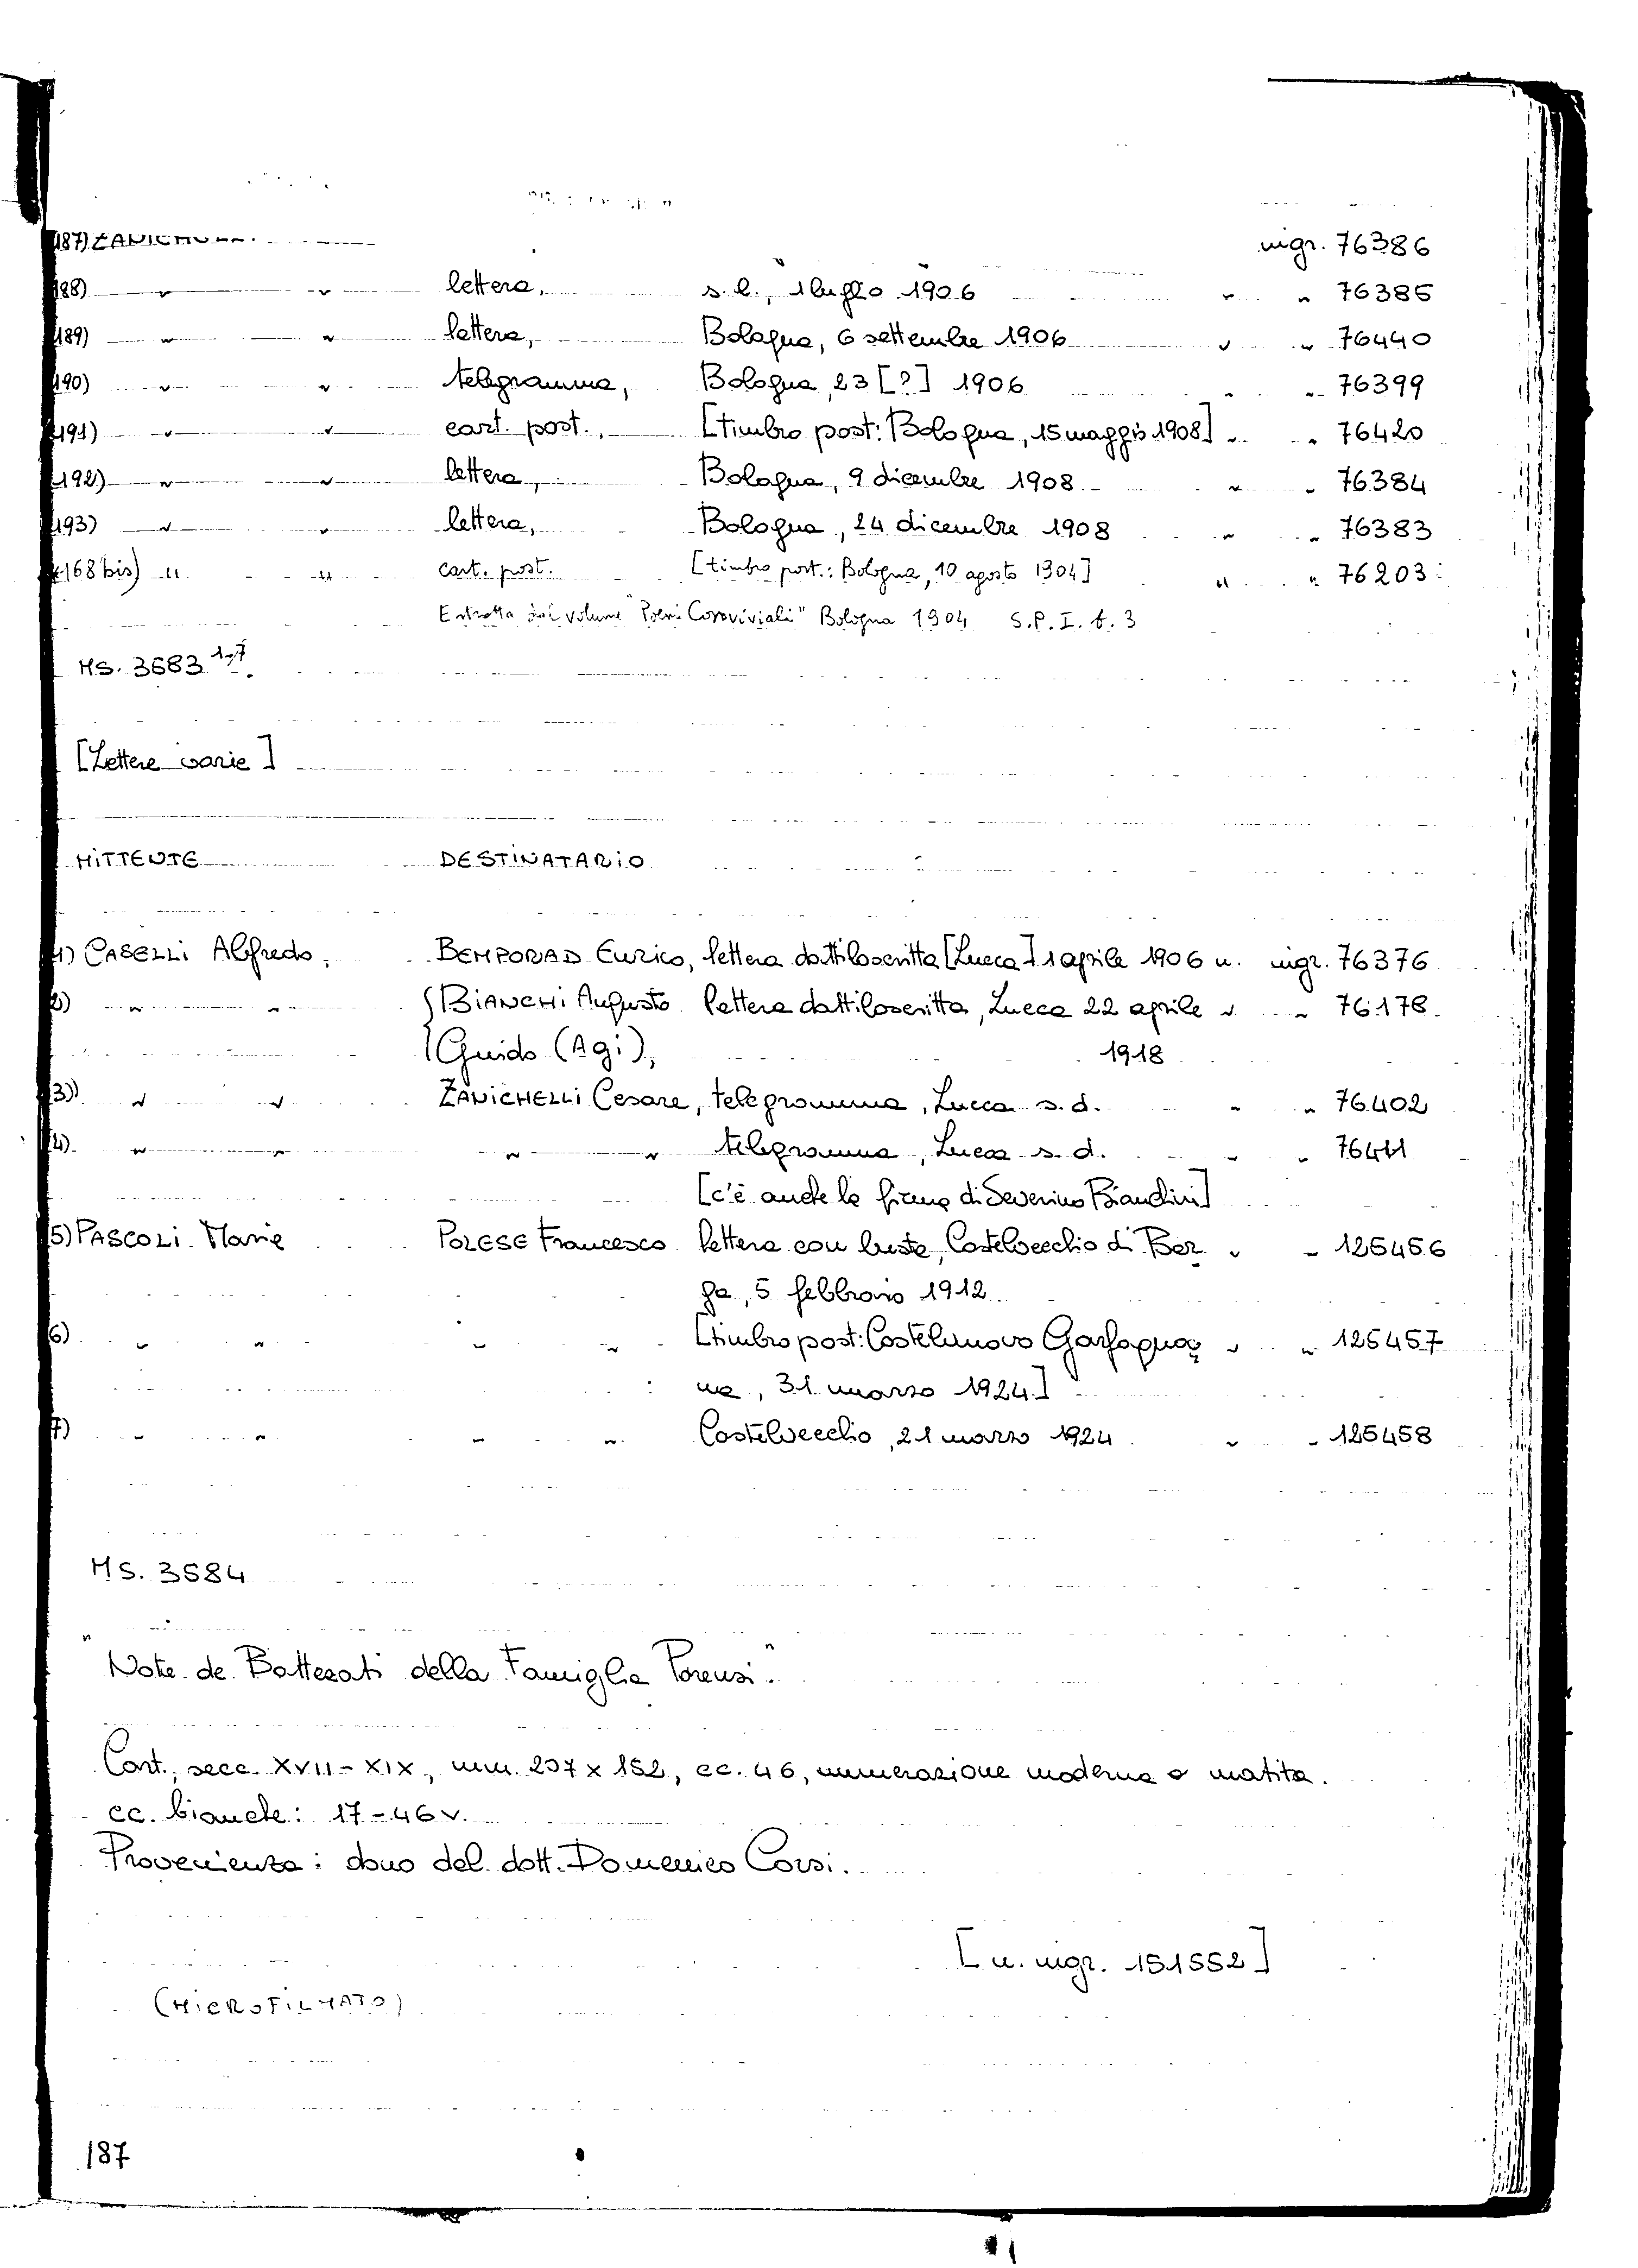 187) ZANICHELLI ingr. 76386
188) " " lettera, s.l., 1 luglio 1906 " " 76385
189) " " lettera, Bologna, 6 settembre 1906 " " 76440
190) " " telegramma, Bologna, 23 [?] 1906 " " 76399
191) " " cart. post., [timbro post: Bologna, 15 maggio 1908] " " 76420
192) " " lettera, Bologna, 9 dicembre 1908 " " 76384
193) " " lettera, Bologna, 24 dicembre 1908 " " 76383
168 bis) " " cart. post. [timbro post.: Bologna, 10 agosto 1904] " " 76203
Estratta dal volume "Poemi Conviviali" Bologna 1904 S.P. I. b. 3
MS. 3683 1-7.
[Lettere varie]
MITTENTE DESTINATARIO
1) CASELLI Alfredo, BEMPORAD Enrico, lettera dattiloscritta [Lucca] 1 aprile 1906 n. ingr. 76376
2) " " BIANCHI Augusto lettera dattiloscritta, Lucca 22 aprile " " 76178
Guido (Agi), 1918
3) " " ZANICHELLI Cesare, telegramma, Lucca s.d. " " 76402
4) " " " " telegramma, Lucca s.d. " " 76411
[c'è anche la firma di Severino Bianchini]
5) PASCOLI Maria POLESE Francesco lettera con busta, Castelvecchio di Bar " " 125456
ga, 5 febbraio 1912
6) " " " " [timbro post: Castelnuovo Garfagna " " 125457
na, 31 marzo 1924]
7) " " " " Castelvecchio, 21 marzo 1924 " " 125458
MS. 3684
"Note de Battezati della Famiglia Parensi."
Cart., secc. XVII-XIX, mm. 207 x 152, cc. 46, numerazione moderna a matita.
cc. bianche: 17-46v.
Provenienza: dono del dott. Domenico Corsi.
[n. ingr. 151552]
(MICROFILMATO)
187